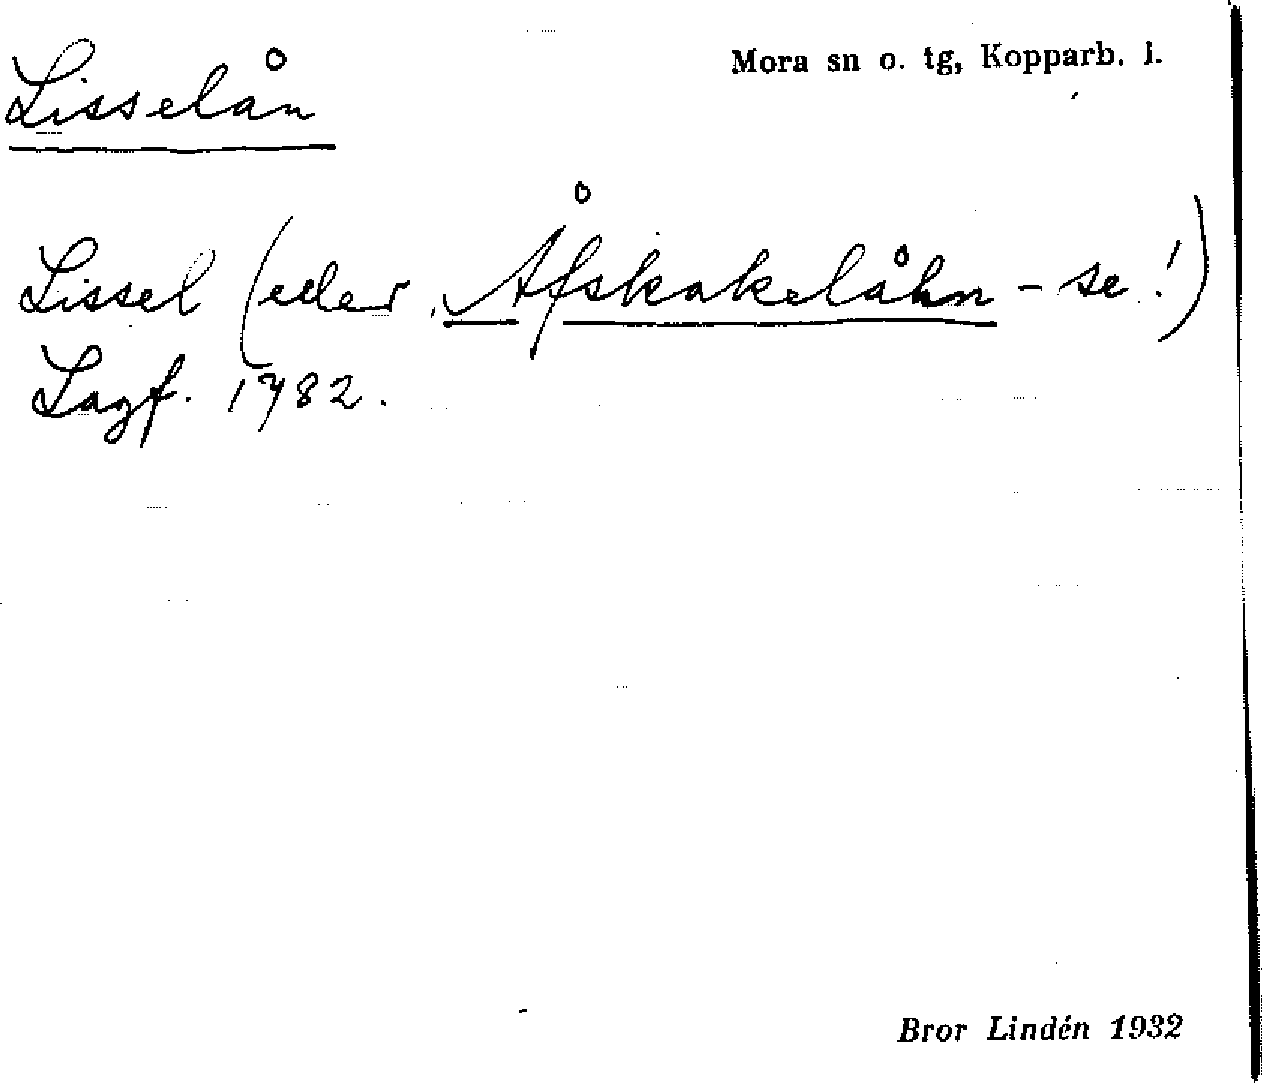 Lisselån
Mora sn o. tg, Kopparb. l.
Lissel (eller Åfskakelåhn - se!)
Lagf. 1782.
Bror Lindén 1932